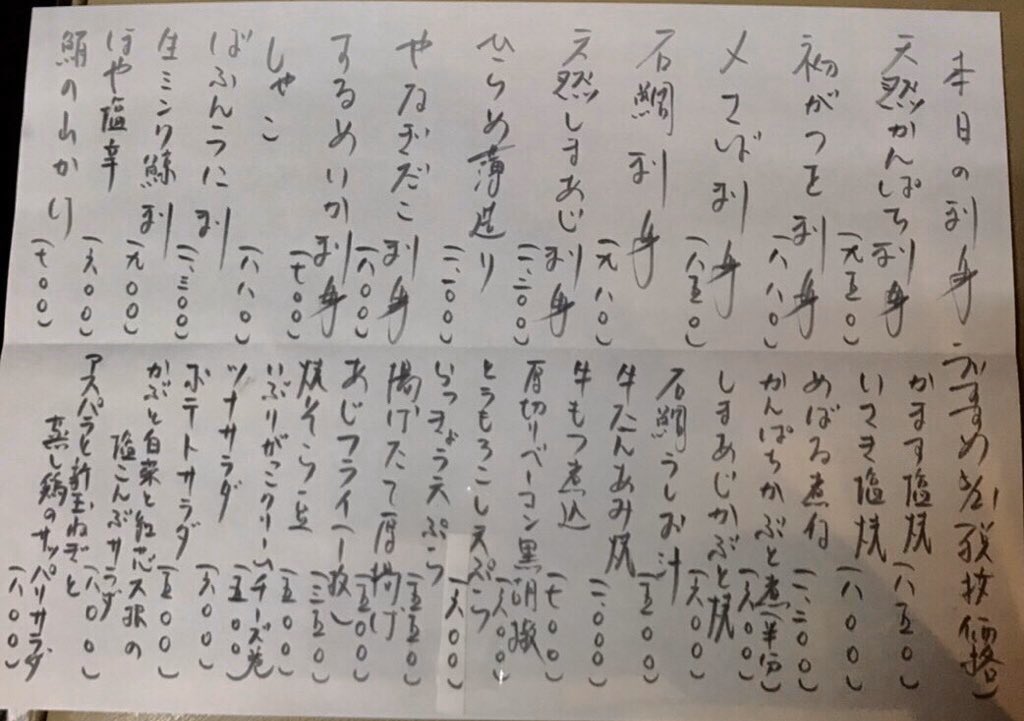 本日の刺身
天然かんぱち刺身(九五〇)
初がつを刺身(八八〇)
〆さば刺身(八五〇)
石鯛刺身(九八〇)
天然しまあじ刺身(一、二〇〇)
ひらめ薄造り(一、二〇〇)
やなぎだこ刺身(八〇〇)
するめいか刺身(七〇〇)
しゃこ(八八〇)
ばふんうに刺(一、三〇〇)
生ミンク鯨刺(九〇〇)
ほや塩辛(六〇〇)
鮪の山かけ(七〇〇)
おすすめ(税抜価格)
かます塩焼(八五〇)
いさき塩焼(八〇〇)
めばる煮付(一、二〇〇)
かんぱちかぶと煮(半分)(六〇〇)
しまあじかぶと焼(六〇〇)
石鯛うしお汁(五〇〇)
牛たんあみ焼(一、〇〇〇)
牛もつ煮込(七〇〇)
厚切りベーコン黒胡椒(六〇〇)
とうもろこし天ぷら(六〇〇)
らっきょう天ぷら(五五〇)
揚げたて厚揚げ(五〇〇)
あじフライ(一枚)(三五〇)
焼そら豆(五〇〇)
いぶりがっこクリームチーズ巻(五〇〇)
ツナサラダ(六〇〇)
ポテトサラダ(五〇〇)
かぶと白菜と紅芯大根の
塩こんぶサラダ(八〇〇)
アスパラと新玉ねぎと
蒸し鶏のサッパリサラダ(八〇〇)